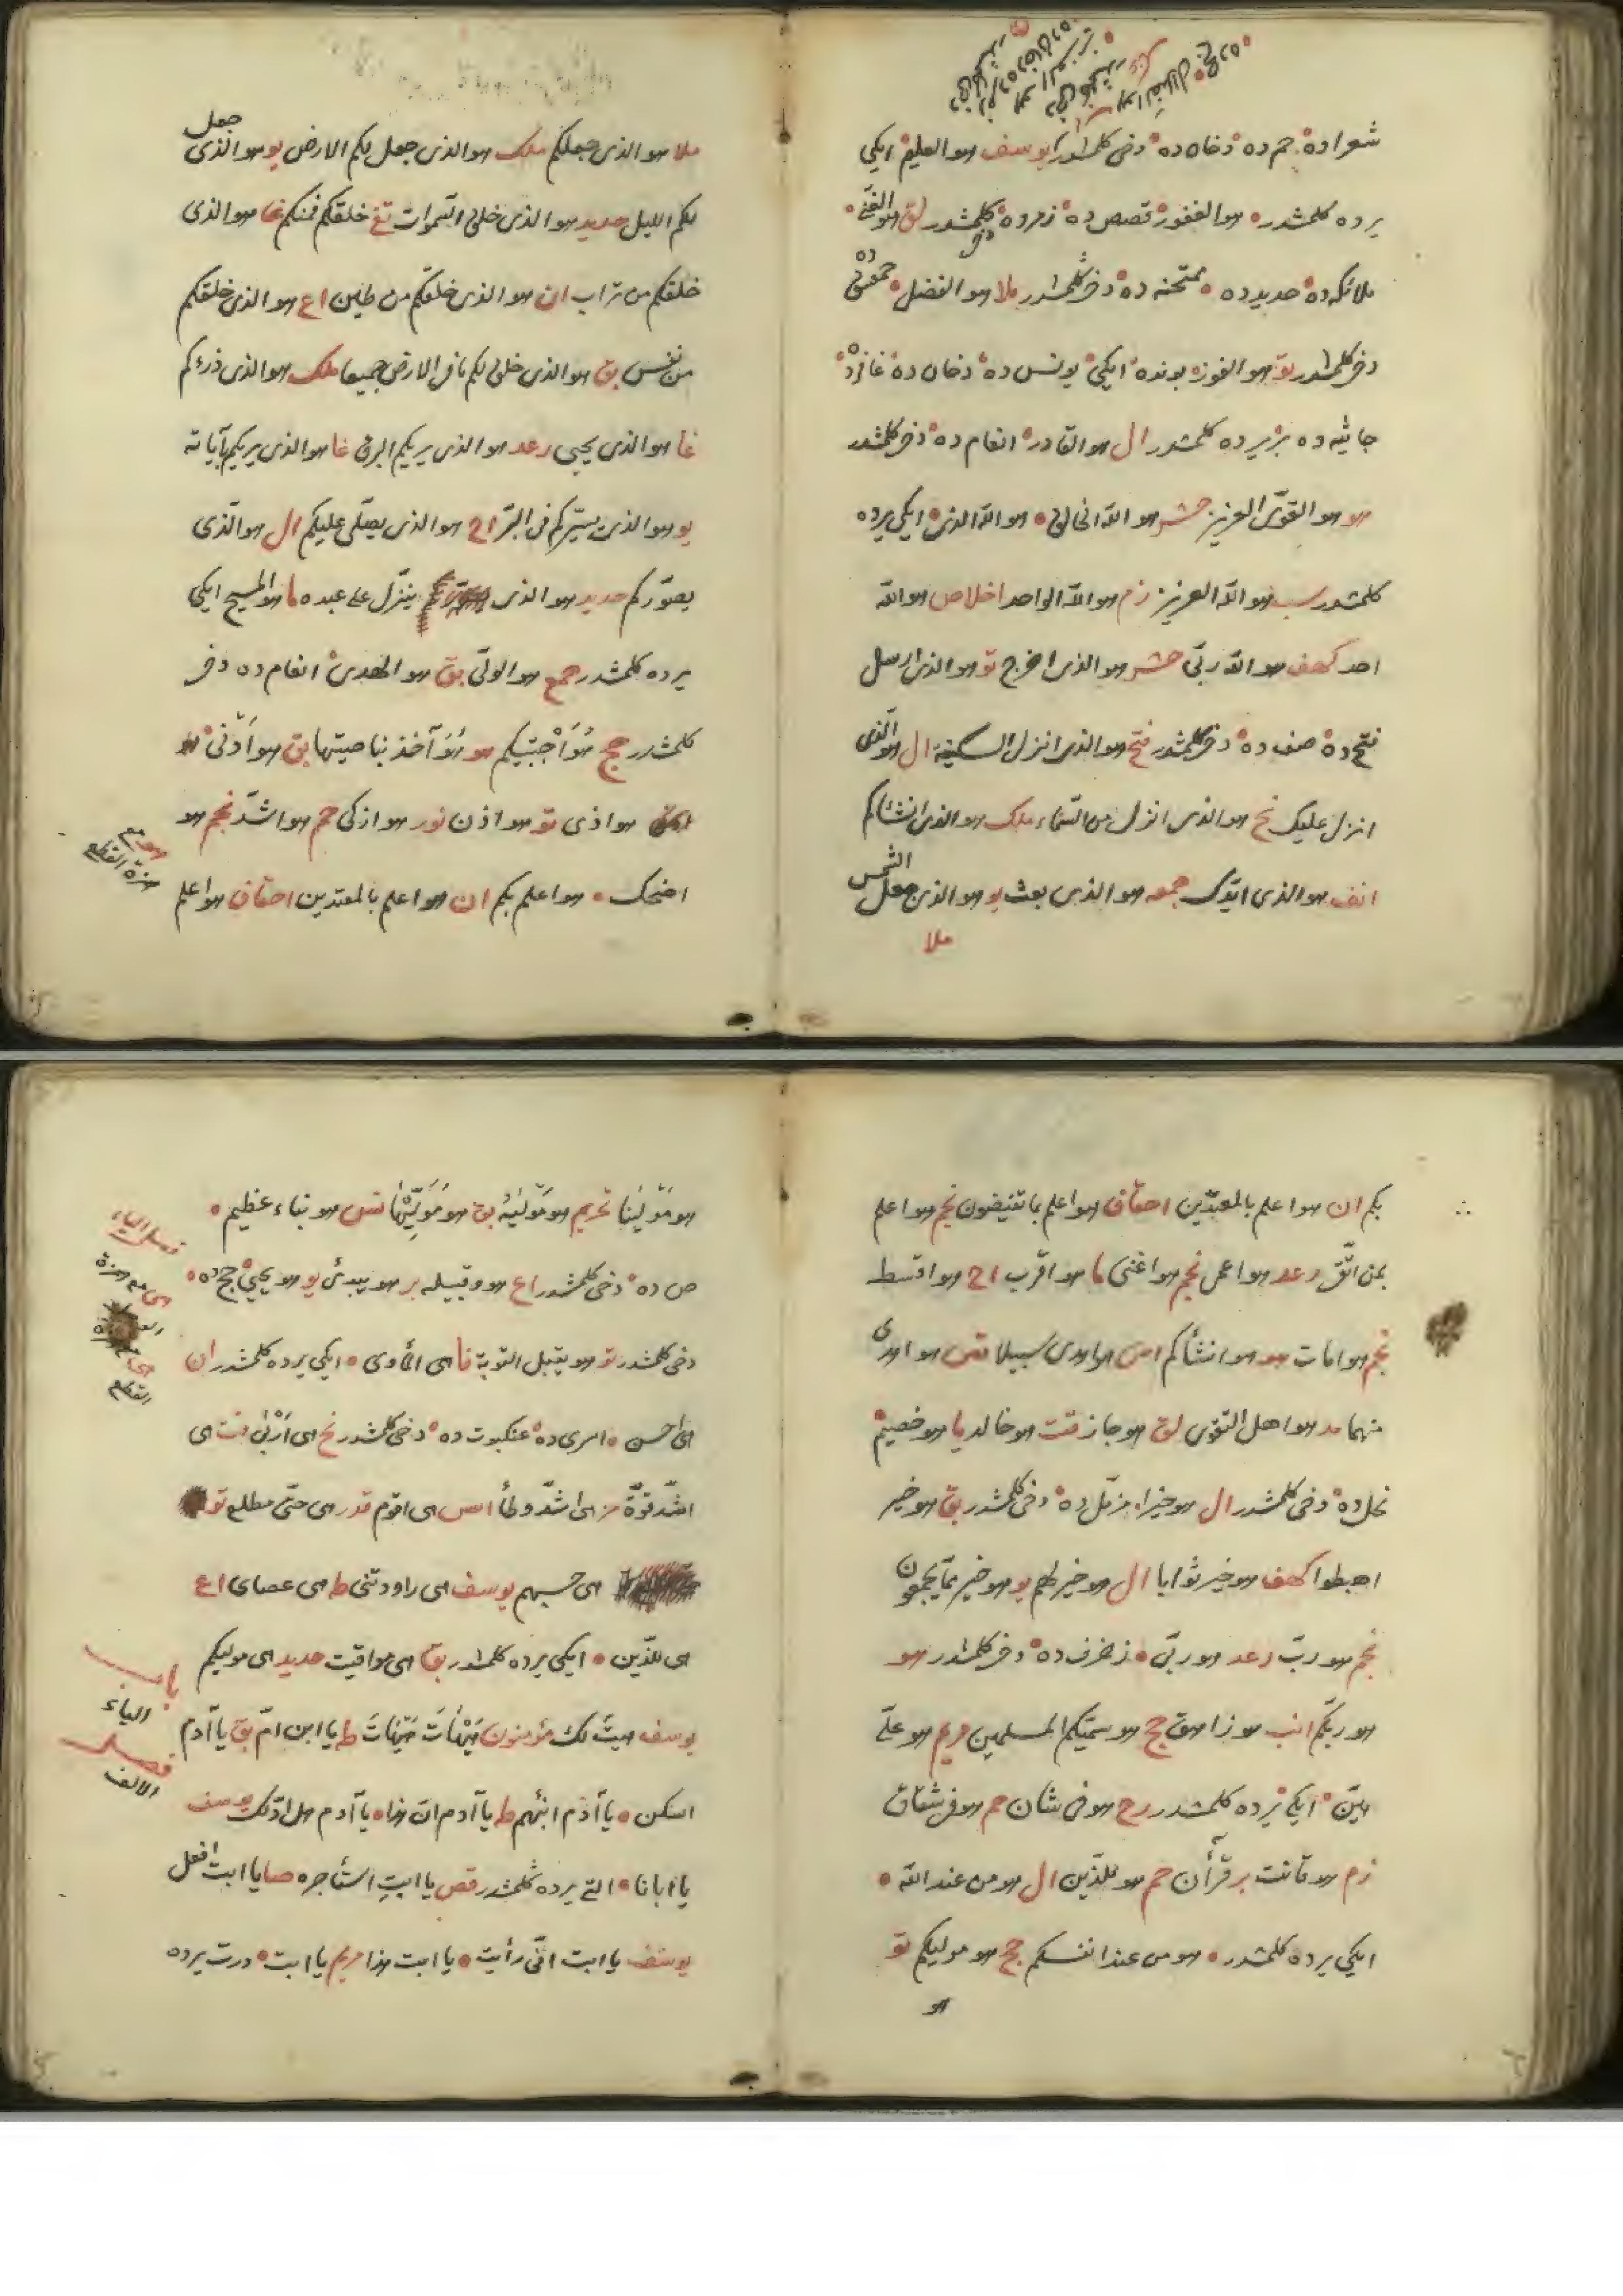 شعراده حم ده دخان ده دخی كلمشدر يوسف هو العليم ايكی
يرده كلمشدر هو الغفور قصص ده زمرده دخی كلمشدر لق هو الغنی
ملائكه ده حديد ده ممتحنه ده دخی كلمشدر ملا هو الفضل حمعسق ده
دخی كلمشدر تو هو الفوز بونده ايكی يونس ده دخان ده غافرده
جاثيه ده برير ده كلمشدر ال هو القادر انعام ده دخی كلمشدر
هو هو القوی العزيز حشر هو الله الخالق هو الله الذی ايكی يرده
كلمشدر سبا هو الله العزيز زم هو الله الواحد اخلاص هو الله
احد كهف هو الله ربی حشر هو الذی اخرج تو هو الذی ارسل
فتح ده صف ده دخی كلمشدر فتح هو الذی انزل السكينة ال هو الذی
انزل عليك نح هو الذی انزل من السماء ملك هو الذی انشاكم
انف هو الذی ايدك جمعه هو الذی بعث يو هو الذی جعل الشمس
ملا
ملا هو الذی جعلكم ملك هو الذی جعل لكم الارض يو هو الذی جعل
لكم الليل حديد هو الذی خلق السموات تغ خلقكم فمنكم غا هو الذی
خلقكم من تراب ان هو الذی خلقكم من طين اع هو الذی خلقكم
من نفس بق هو الذی خلق لكم ما فی الارض جميعا ملك هو الذی ذرءكم
غا هو الذی يحيی رعد هو الذی يريكم البرق غا هو الذی يريكم آياته
يو هو الذی يسيركم فی البر اح هو الذی يصلی عليكم ال هو الذی
يصوركم حديد هو الذی ينزل علی عبده ما هو المسيح ايكی
يرده كلمشدر حمع هو الولی بق هو الهدی انعام ده دخی
كلمشدر حج هو اجتبيكم هو هو آخذ بناصيتها بق هو ادنی
هو اذی تو هو اذن نور هو ازكی حم هو اشد نجم هو
اضحك هو اعلم بكم ان هو اعلم بالمعتدين احقاف هو اعلم
هو مع
همزة القطع
بكم ان هو اعلم بالمعتدين احقاف هو اعلم بما تفيضون نجم هو اعلم
بمن اتقی رعد هو اعمی نجم هو اغنی ما هو اقرب اح هو اقسط
نجم هو امات هو هو انشأكم اس هو اهدی سبيلا قص هو اهدی
منهما مد هو اهل التقوی لق هو جاز قت هو خالد يا هو خصيم
نحل ده دخی كلمشدر ال هو خيرا مزمل ده دخی كلمشدر بق هو خير
اهبطوا كهف هو خير ثوابا ال هو خير لهم يو هو خير مما يجمعون
نجم هو رب رعد هو ربی زخرف ده دخی كلمشدر هو
هو ربكم انب هو زاهق حج هو سميكم المسلمين مريم هو علی
هين ايكی يرده كلمشدر رح هو فی شان حم هو فی شقاق
زم هو قانت بر قرآن حم هو للذين ال هو من عند الله
ايكی يرده كلمشدر هو من عند انفسكم حج هو موليكم تو
هو
هو مولينا تحريم هو موليه بق هو موليها قس هو نباء عظيم
ص ده دخی كلمشدر اع هو وقبيله بر هو يبدئ يو هو يحيی حج ده
دخی كلمشدر تو هو يقبل التوبة نا هی المأوی ايكی يرده كلمشدر ان
هی احسن اسری ده عنكبوت ده دخی كلمشدر نح هی اربی قت هی
اشد قوة مز هی اشد وطأ اس هی اقوم قدر هی حتی مطلع تو
هی حسبهم يوسف هی راودتنی ط هی عصای اع
هی للذين ايكی يرده كلمشدر بق هی مواقيت حديد هی موليكم
يوسف هيت لك مؤمنون هيهات هيهات ط يا ابن ام بق يا آدم
اسكن يا آدم انبئهم ط يا آدم ان هذا يا آدم هل ادلك يوسف
يا ابانا التی يرده كلمشدر قص يا ابت استأجره صا يا ابت افعل
يوسف يا ابت انی رأيت يا ابت هذا مريم يا ابت درت يرده
فصل الياء
هی مع همزة
القطع
باب
الياء
فصل
الالف